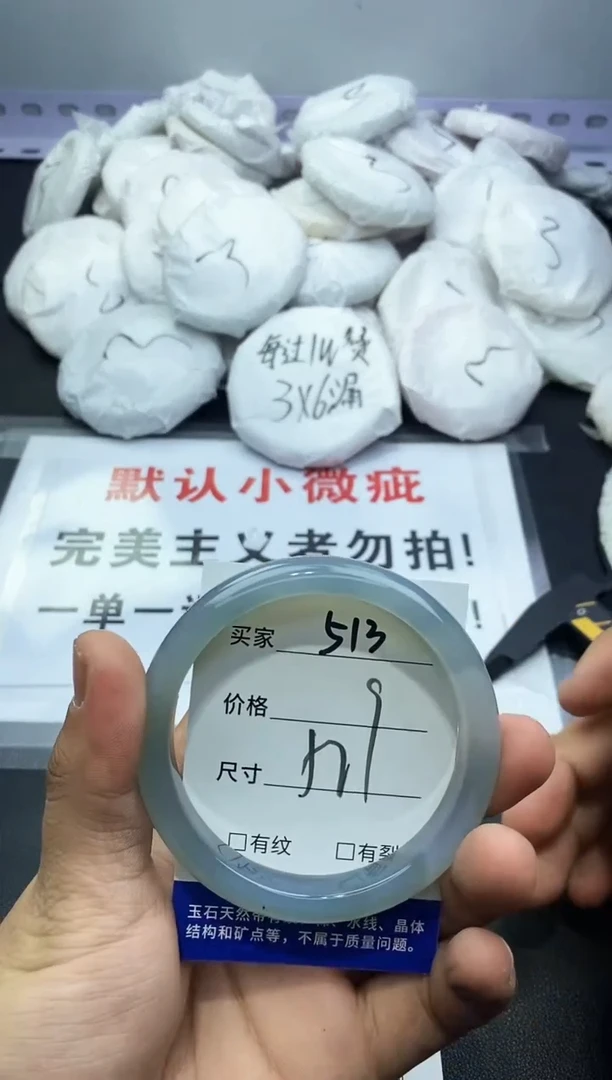 每过1W赞
3X6漏
默认小微疵
完美主义者勿拍!
一单一
!
买家 513
价格
尺寸
□有纹 □有裂
玉石天然带有 水线、晶体
结构和矿点等，不属于质量问题。